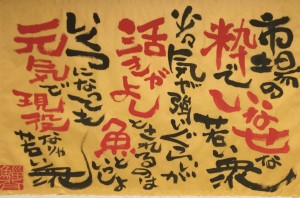 市場の
粋でいなせな
若い衆
少々気が強いぐらいが
活きがよし
とされるのは
魚といっしょ
いくつになっても
元気で現役なりゃ
若い衆